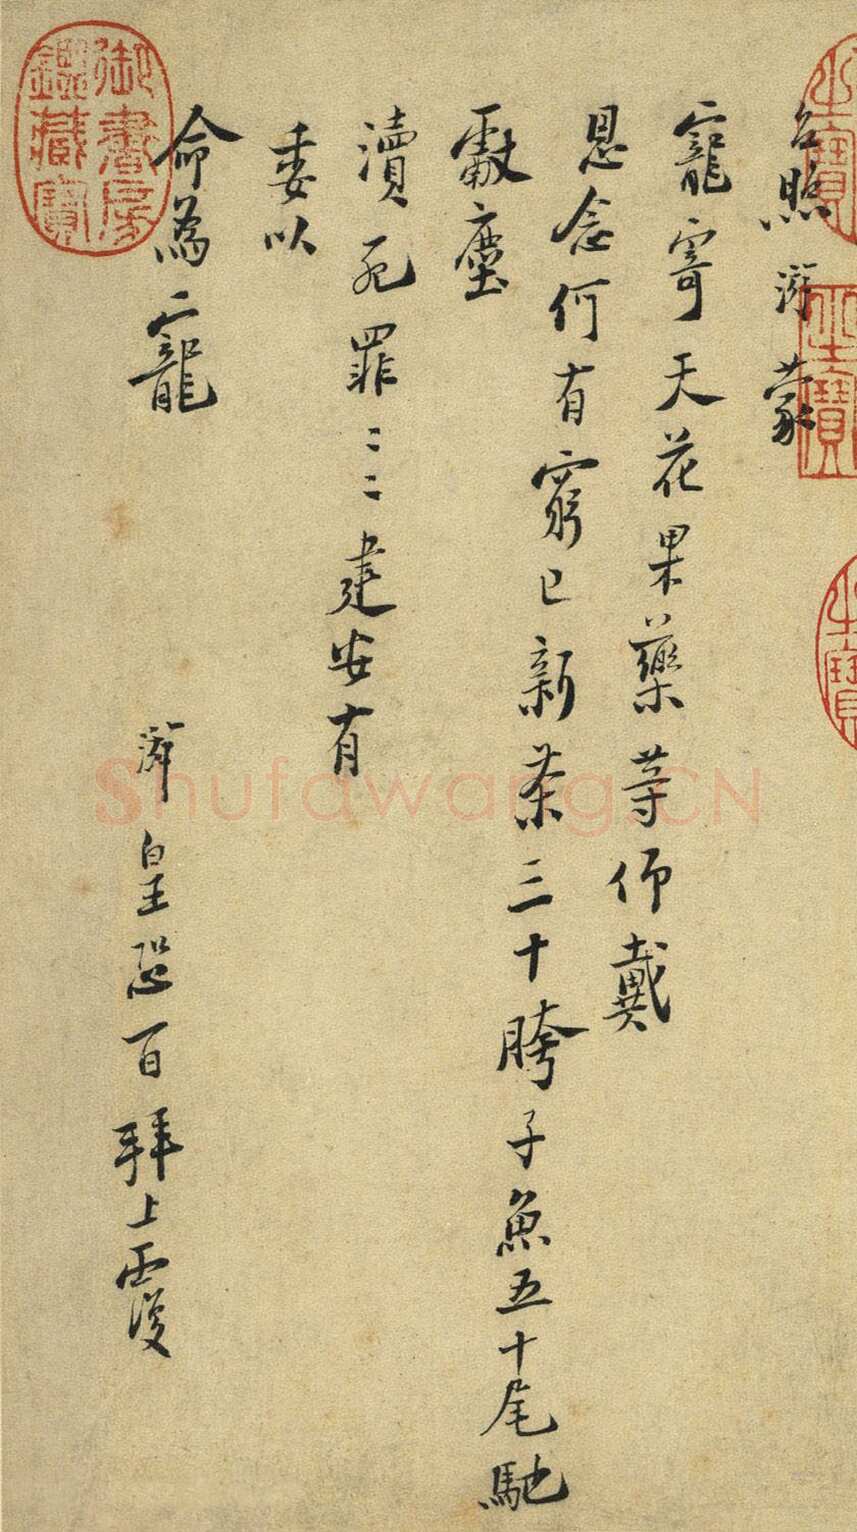 台照游蒙
寵寄天花果藥等仰戴
恩念何有窮已新茶三十胯子魚五十尾馳
獻塵
瀆死罪〻〻建安有
委以
命為寵
游皇恐百拜上覆
御書房
鑑藏寶
Shufawang.CN